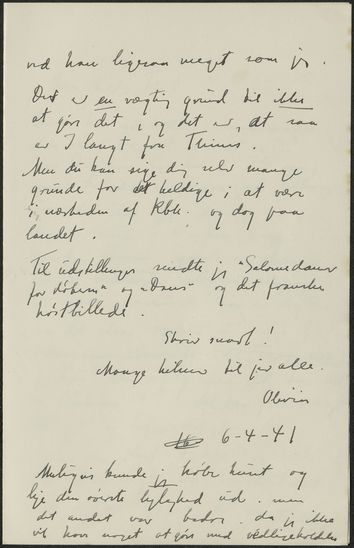 ved han ligesaa meget som jeg.
Det er en vægtig grund til ikke
at gøre det, og det er, at saa
er I langt fra Thinus.
Men du kan sige dig selv mange
grunde for det heldige i at være
i nærheden af Kbh. og dog paa
landet.
Til udstillingen sendte jeg "Salomedanser
for døberen" og "Dans" og det franske
høstbillede.
Skriv snart!
Mange hilsner til jer alle.
Olivia
6-4-41
Muligvis kunde jeg købe huset og
leje den øverste lejlighed ud. men
det andet var bedre, da jeg ikke
vil have noget at gøre med vedligeholdelsen